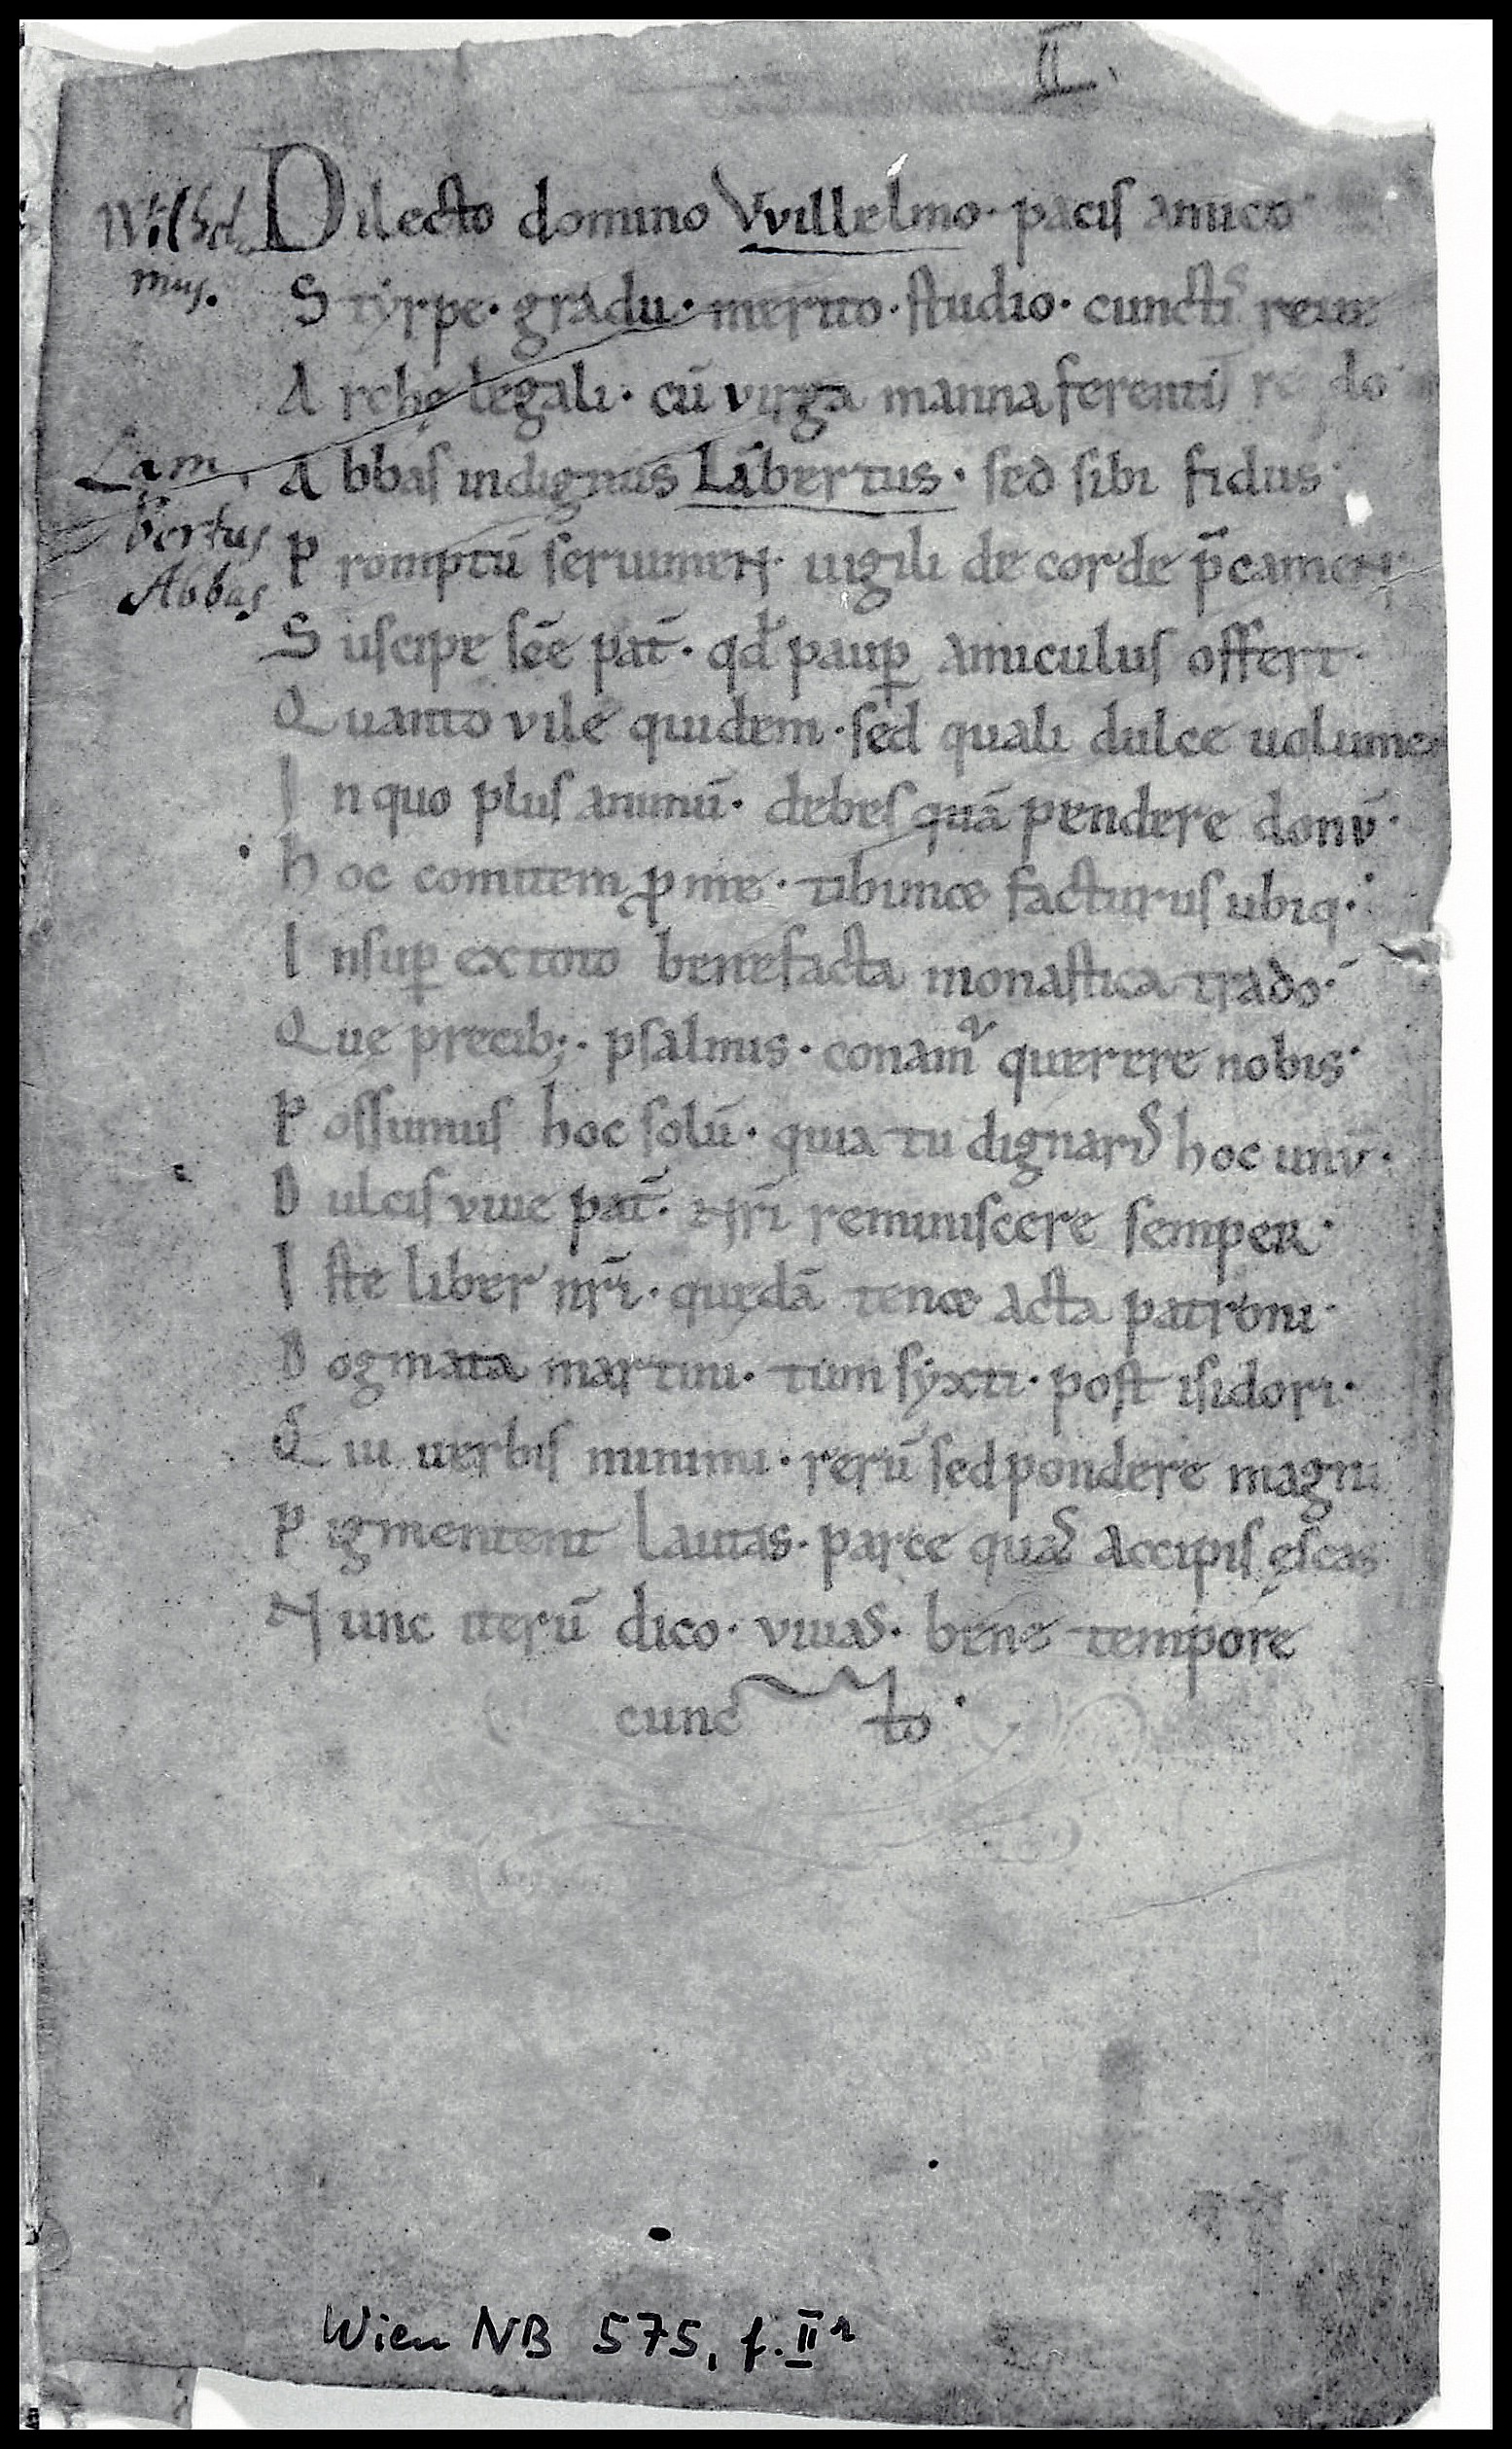 II.
Dilecto domino VVillelmo· pacis amico·
Wilhel
mus.
Styrpe· gradu· merito· studio· cunctis
Archę legali· cū virga manna ferenti
Abbas indignus Lābertus· sed sibi fidus·
Lam
bertus
Abbas
Promptū seruimeN· uigili de corde p̄cameN·
Suscipe sc̄e pat̄· qđ paup̱ amiculus offert·
Quanto vile quidem· sed quali dulce uolumeN
In quo plus animū· debes quā pendere donū·
Hoc comitem ꝓ me· tibimet facturus ubiq·
Insup̱ ex toto benefacta monastica trado·
Quę precib;· psalmis· conam̃ querere nobis·
Possumus hoc solū· quia tu dignaris hoc unū·
Dulcis viue pat̄· Nr̄i reminiscere sempeR·
Iste liber nr̄i· quedā tenet acta patroni·
Dogmata martini· tum syxti· post isidori·
Qui uerbis minimi· rerū sed pondere magni
Pigmentent lautas· parce quas accipis ęscas
Nunc iterū dico· viuas· bene tempore
cuncto·
Wien NB 575, f. IIr